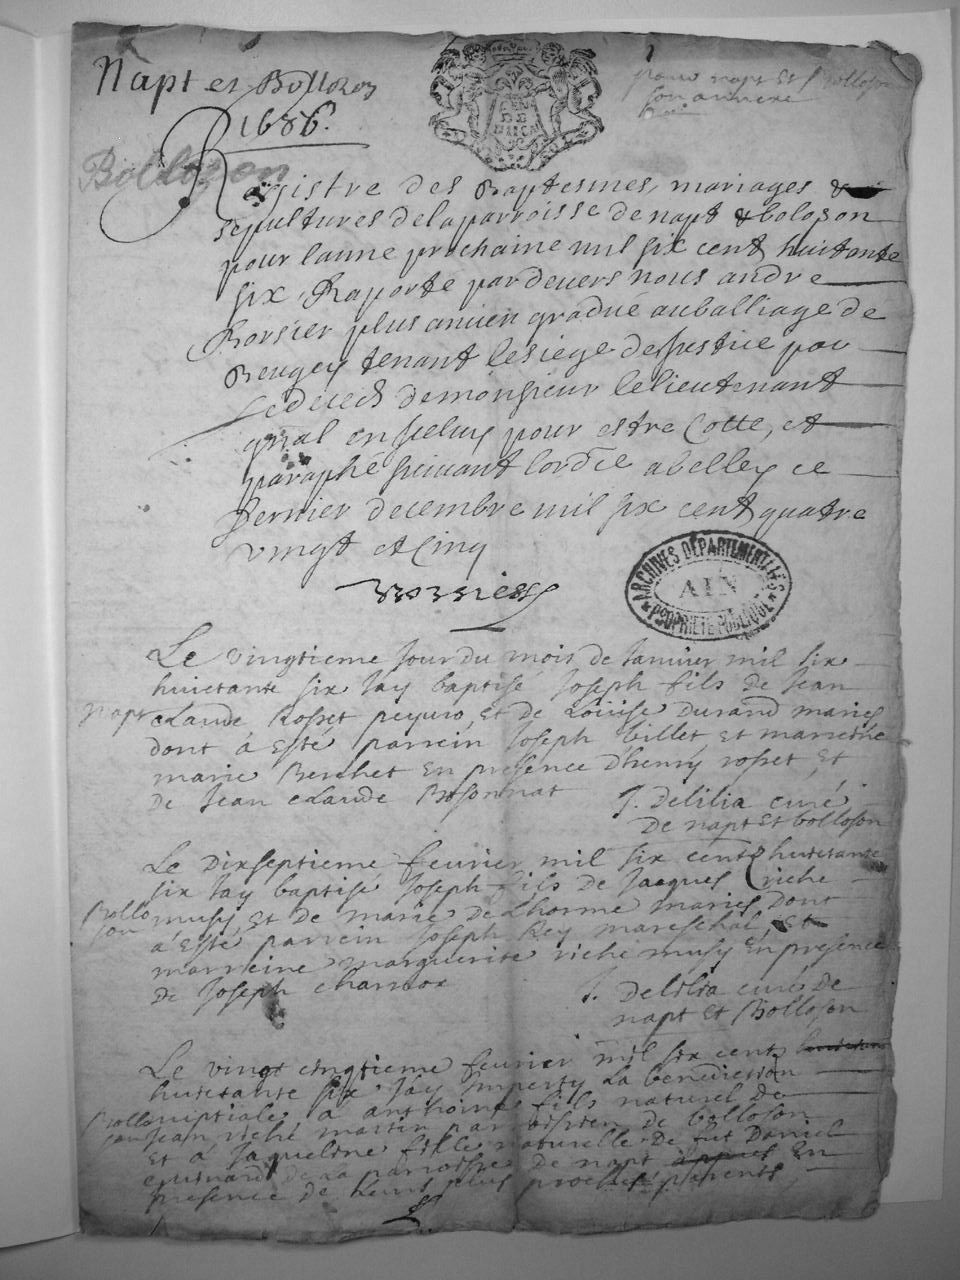 Napt et Bolloson
1686.
pour napt Et Bolloson
son annexe
Bollozon
Registre des Baptesmes, mariages &
sepultures delaparroisse de napt & bolozon
pour lanne prochaine mil six cent huitante
six, Raporte pardevers nous andre
Borsier plus ancien gradué auballiage de
Beugey tenant lesiege dejustice pour
ledeces demonsieur lelieutenant
gnal en jceluy pour estre Cotte, et
paraphé suivant lordce abelley ce
dernier decembre mil six cent quatre
vingt et Cinq
ARCHIVES DÉPARTEMENTALES
AIN
PROPRIÉTÉ PUBLIQUE
Le vingtieme jour du mois de Janvier mil six
huictante six Jay baptisé Joseph fils de Jean
Napt
claude Rosset et de Louise Durand maries
dont à esté parrein Joseph billet et marreine
marie Berchet en presence dhenry rosset, et
de Jean claude
J. Delilia curé
de napt et bolloson
Le dixseptieme feurier mil six cent huictante
six Jay baptisé Joseph fils de Jacques riche
Bolloson
musy, Et de marie de Lhorme maries dont
à esté parrein Joseph Rey mareschal, Et
marreine marguerite riche musy en presence
de Joseph charnox
J. Delilia curé de
napt et Bolloson
Le vingt cinqtieme feurier mil six cent
huictante six Jay imperty La benediction
Bolloson
nuptiale a anthoine fils naturel de
Jean riché martin parroissien de bolloson
Et à Jaqueline fille naturelle de fut Daniel
de La parroisse de napt En
presence de Leurs plus proches parents,